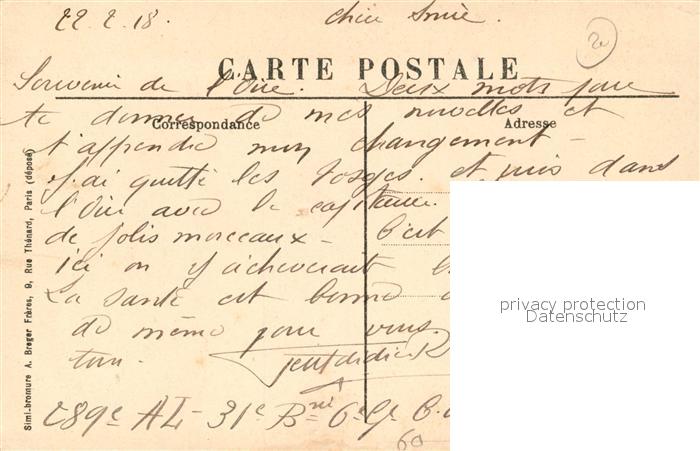 22.2.18. Chère Amie.
CARTE POSTALE
Souvenir de l'Oise. Deux mots pour
te donner de mes nouvelles et
Correspondance
Adresse
t'apprendre mon changement -
j'ai quitté les Vosges. et suis dans
l'Oise avec le capitaine.
de jolis morceaux - C'est
ici on y achèverait
La santé est bonne
de même pour vous.
289e AL - 31e Bie 6e Ge
20
60
Simi-bromure A. Breger Frères, 9, Rue Thénard, Paris (déposé)
privacy protection
Datenschutz